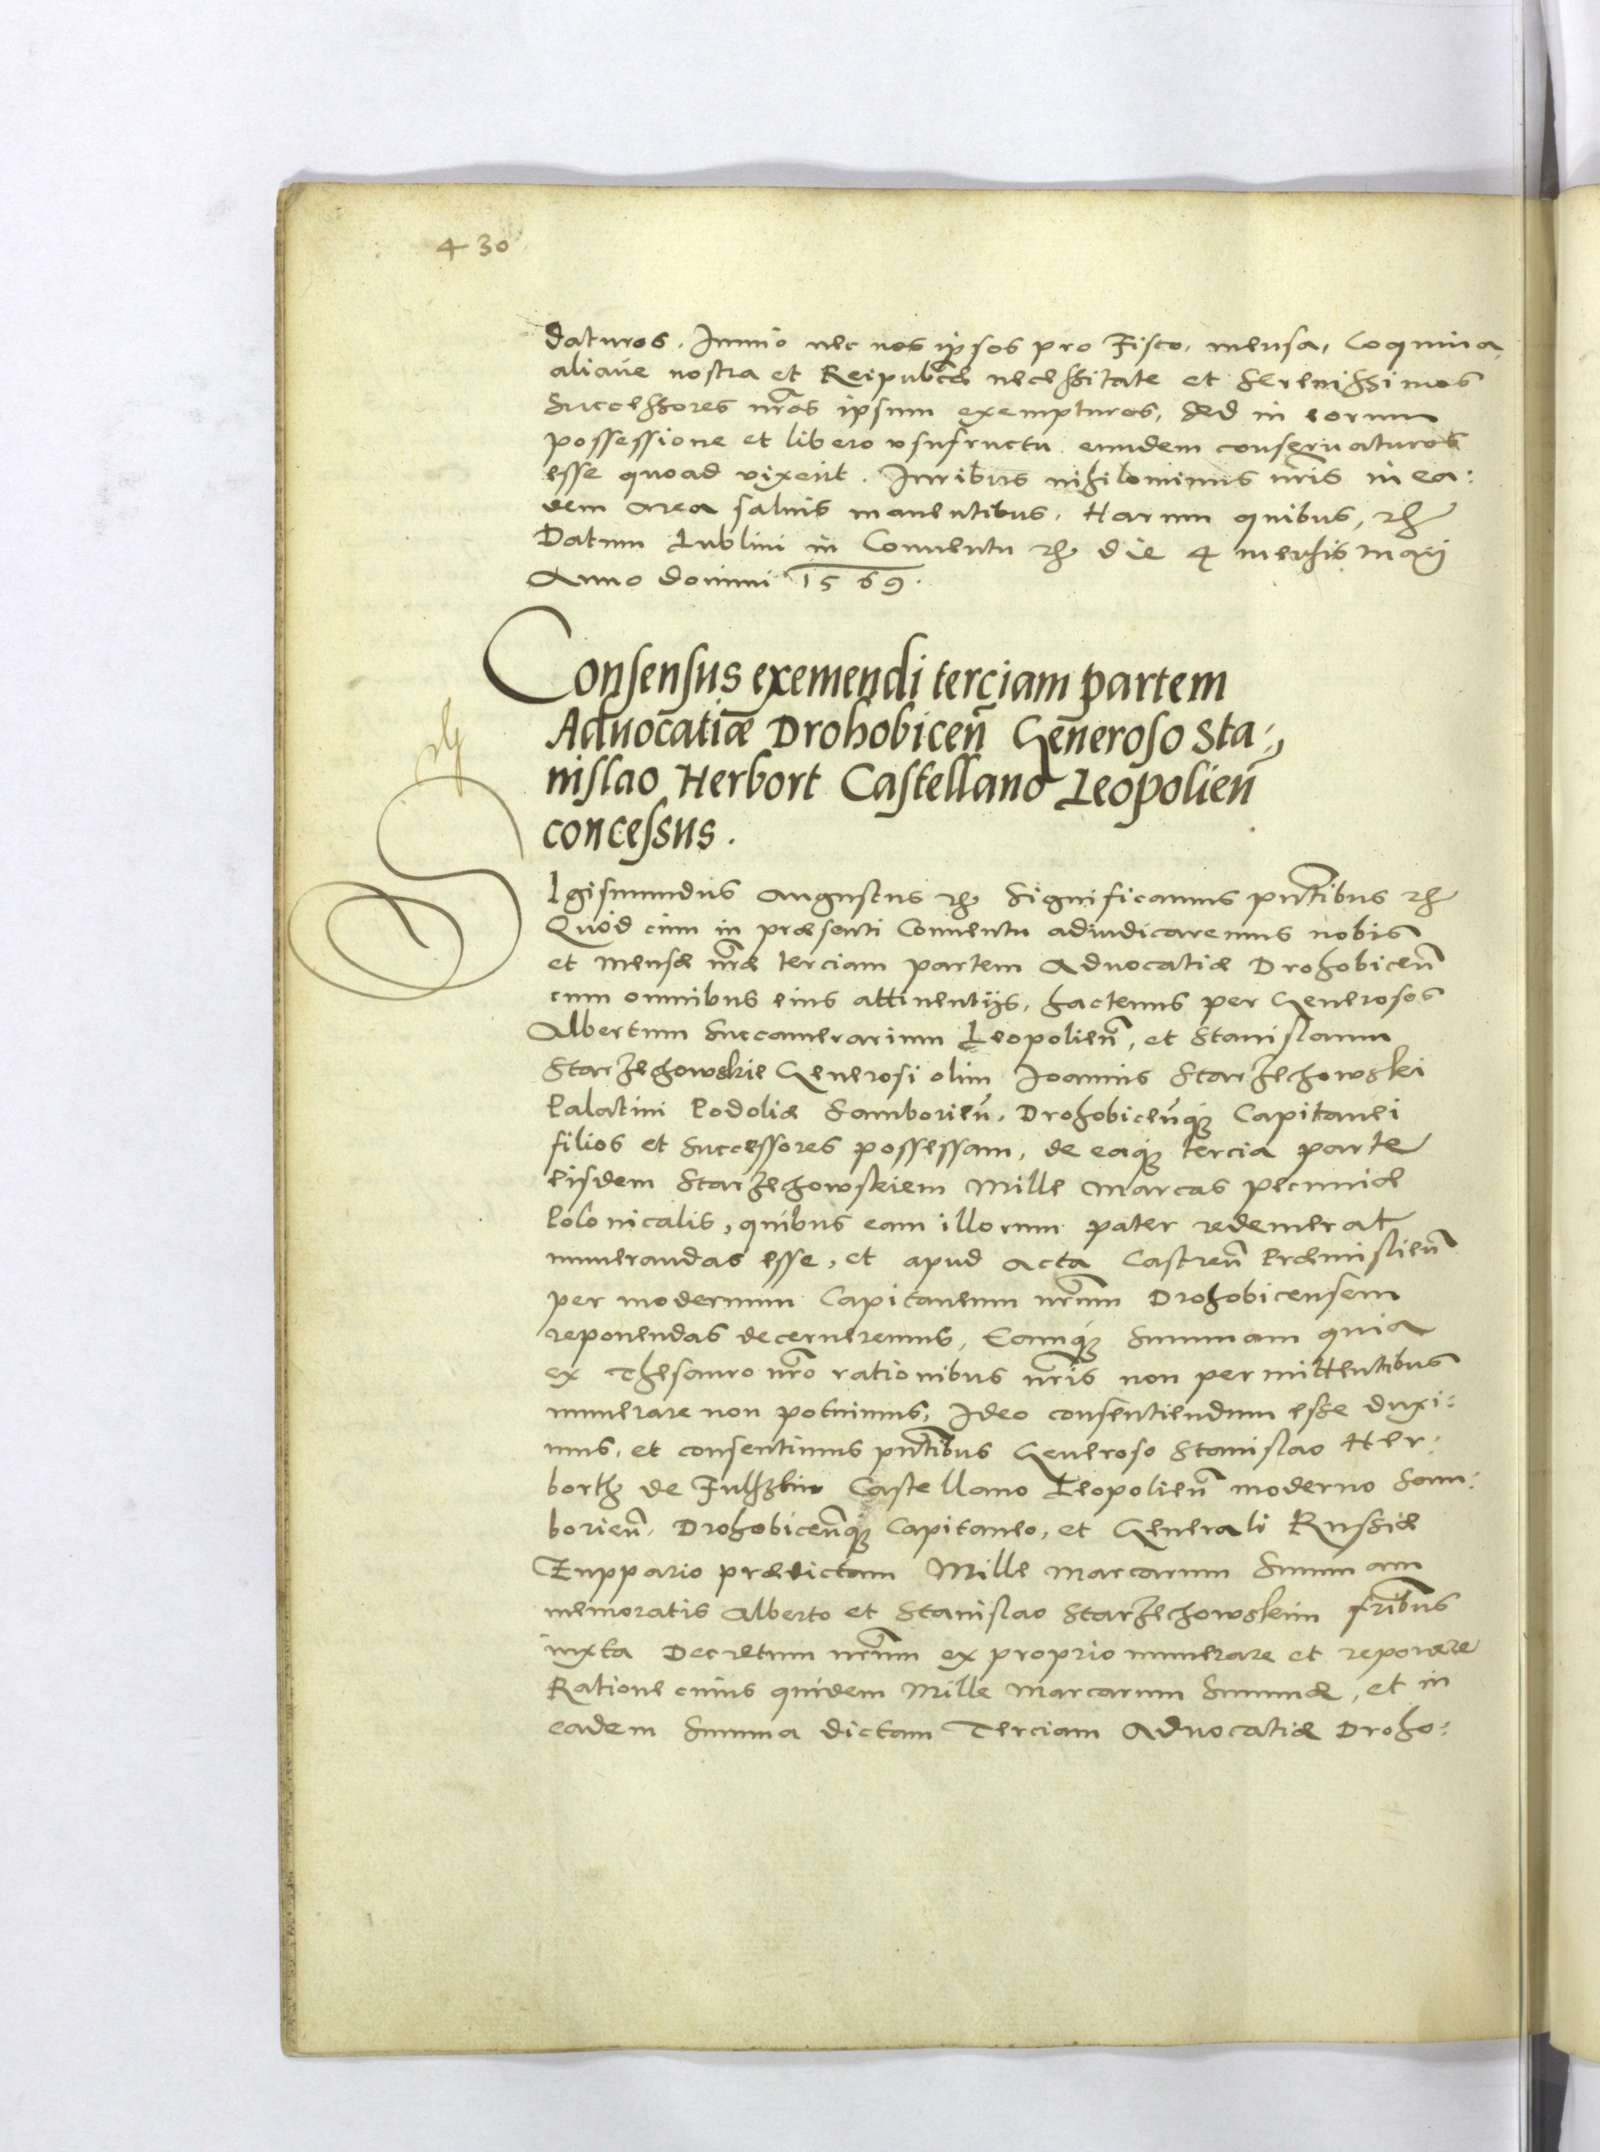 430
daturos. Immo nec nos ipsos pro Fisco, mensa, Coquina,
aliave nostra et Reipublcæ necessitate et Serenissimos
Successores nros ipsum exempturos, sed in eorum
possessione et libero usufructu eundem conservaturos
esse quoad vixerit. Iuribus nihilominus nris in ea:
dem area salvis manentibus. Harum quibus, etc
Datum Lublini in Conventu etc die 4 mensis maij
Anno domini 1569.
Consensus exemendi terciam partem
Advocatiæ Drohobiceñ Generoso Sta:
nislao Herbort Castellano Leopolieñ
concessus.
SIgismundus Augustus etc Significamus pntibus etc
Quod cum in præsenti Conventu adiudicaremus nobis
et mensæ nræ terciam partem Advocatiæ Drohobiceñ
cum omnibus eius attinentijs, hactenus per Generosos
Albertum Succamerarium Leopolieñ, et Stanislaum
Starzechowskie Generosi olim Ioannis Starzechowski
Palatini Podoliæ Samborieñ, Drohobiceñq3 Capitanei
filios et Successores possessam, de eaq3 tercia parte
eisdem Starzechowskiem Mille Marcas pecuniæ
Polonicalis, quibus eam illorum pater redemerat
numerandas esse, et apud Acta Castreñ Præmislieñ
per modernum Capitaneum nrum Drohobicensem
reponendas decerneremus, Eamq3 Summam quia
ex Thesauro nro rationibus nris non permittentibus
numerare non potuimus, Ideo consentiendum esse duxi:
mus, et consentimus pntibus Generoso Stanislao Her:
borth de Fulsztin Castellano Leopolieñ moderno Sam:
borieñ, Drohobiceñq3 Capitaneo, et Generali Russiæ
Zuppario prædictam Mille marcarum Summam
memoratis Alberto et Stanislao Starzechowskim fribus
iuxta Decretum nrum ex proprio numerare et reponere
Ratione cuius quidem Mille Marcarum Summæ, et in
eadem Summa dictam Terciam Advocatiæ Droho: